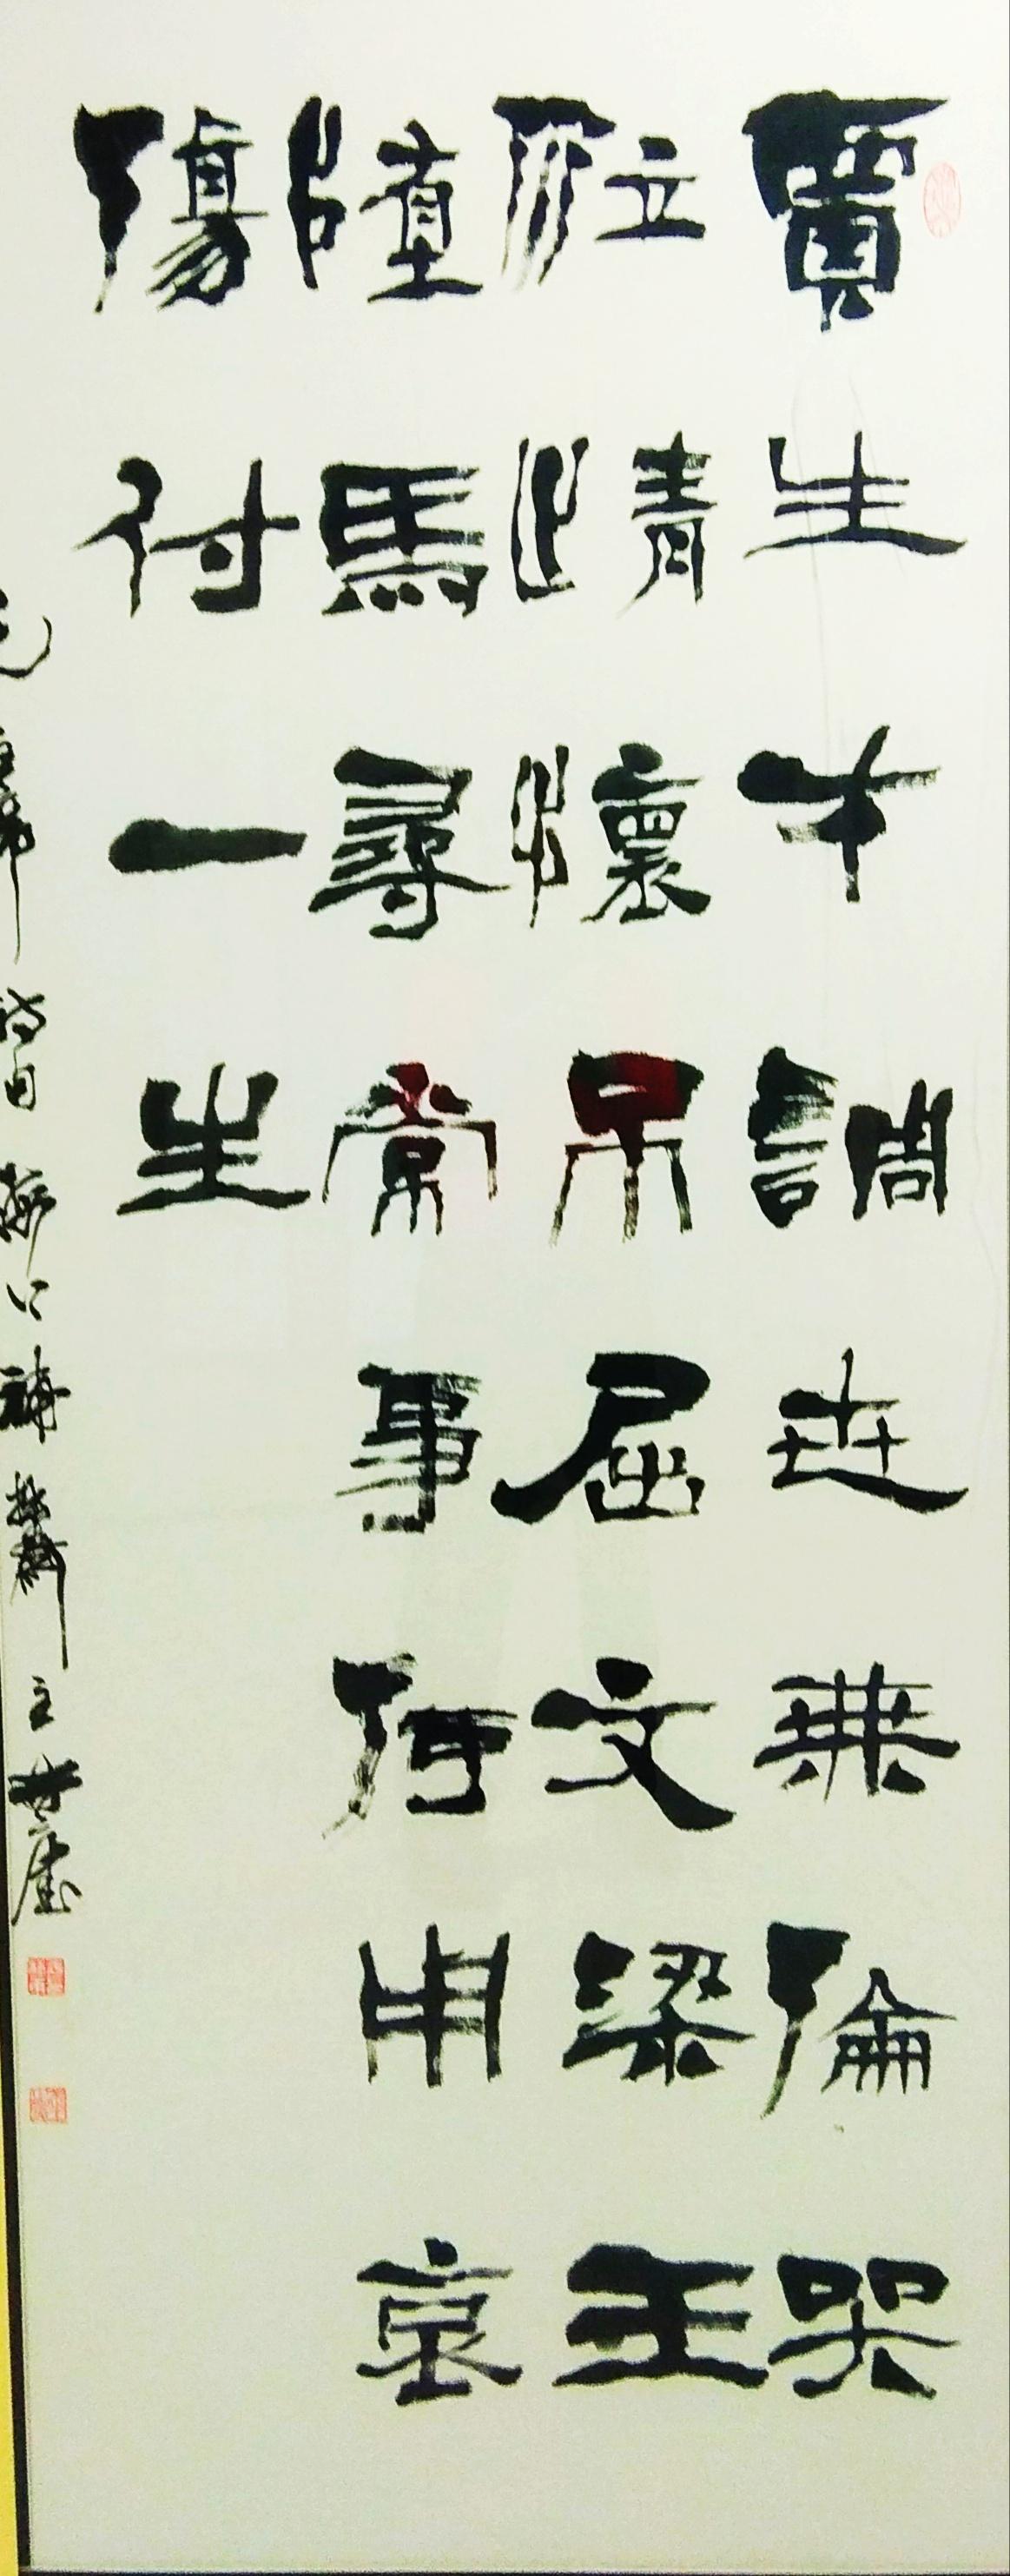 賈生才調世無倫哭
泣情懷吊屈文梁王
墮馬尋常事何用哀
傷付一生
毛主席詩句